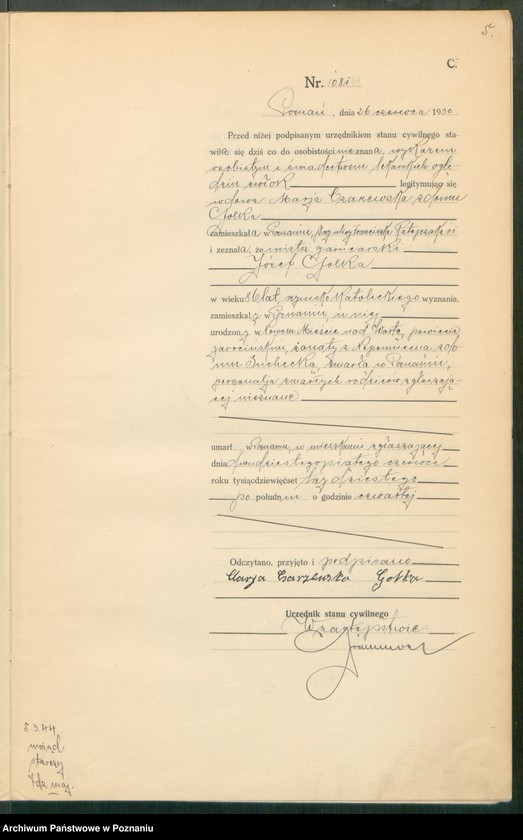 5.
C.
Nr. 1081
Poznań, dnia 26 czerwca 1930
Przed niżej podpisanym urzędnikiem stanu cywilnego sta-
wiła się dziś co do osobistości nieznana, wykazem
osobistym i świadectwem lekarskich oglę-
dzin zwłok legitymując się
wdowa Marja Czarzewska z domu
Golka
zamieszkała w Poznaniu, przy ulicy Franciszka Ratajczaka
i zeznała, że mistrz garncarski
Józef Golka
w wieku 86 lat, rzymsko katolickiego wyznania,
zamieszkały w Poznaniu, u niej
urodzony w Nowem Mieście nad Wartą, powiecie
jarocińskim, żonaty z Nepomucena z do-
mu zmarłą w Poznaniu,
personalja zmarłych rodziców zgłaszają-
cej nieznane
umarł w Poznaniu, w mieszkaniu zgłaszającej
dnia dwudziestego piątego czerwca
roku tysiącdziewięćset trzydziestego
po południu o godzinie czwartej
Odczytano, przyjęto i podpisano
Marja Czarzewska Golka
Urzędnik stanu cywilnego
W zastępstwie.
5.3.44
starszy
Archiwum Państwowe w Poznaniu